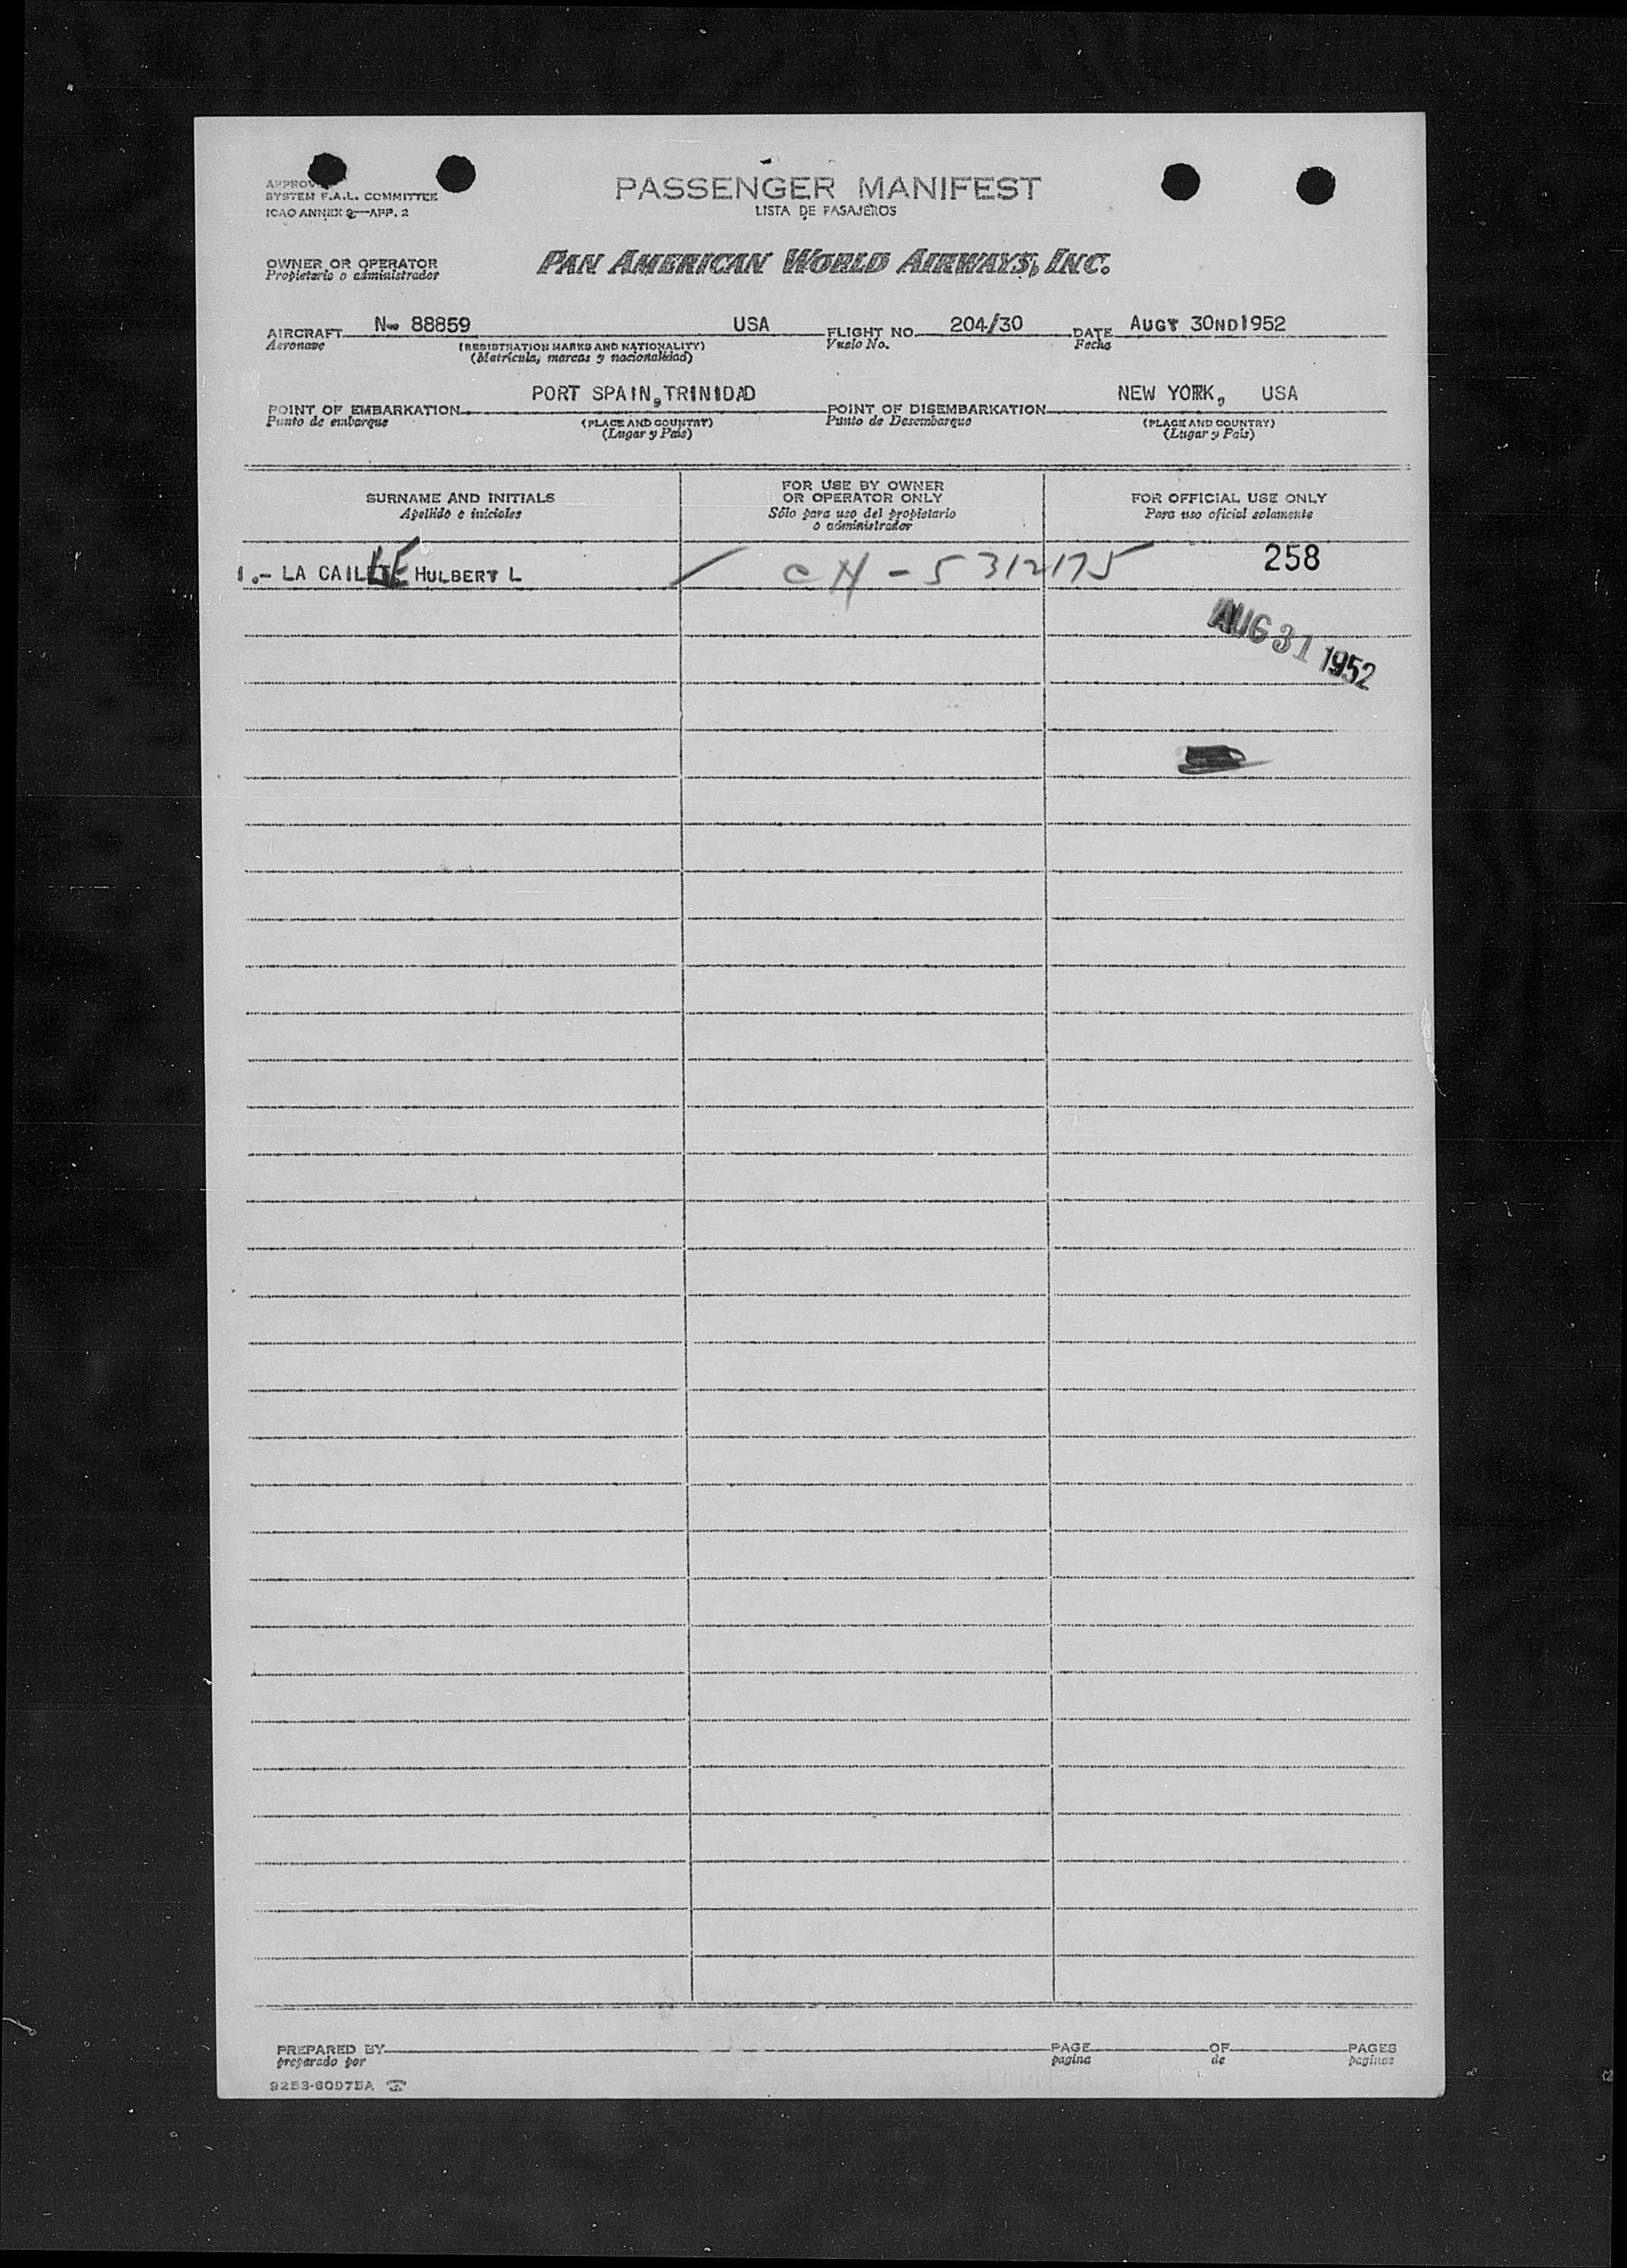 PASSENGER MANIFEST
LISTA DE PASAJEROS
SYSTEM F.A.L. COMMITTEE
ICAO ANNEX 9—APP. 2
OWNER OR OPERATOR
Propietario o administrador
PAN AMERICAN WORLD AIRWAYS, INC.
AIRCRAFT N- 88859 USA FLIGHT NO. 204/30 DATE AUGT 30ND1952
Aeronave (REGISTRATION MARKS AND NATIONALITY) Vuelo No. Fecha
(Matrícula, marcas y nacionalidad)
POINT OF EMBARKATION PORT SPAIN, TRINIDAD POINT OF DISEMBARKATION NEW YORK, USA
Punto de embarque (PLACE AND COUNTRY) Punto de Desembarque (PLACE AND COUNTRY)
(Lugar y País) (Lugar y País)
SURNAME AND INITIALS
Apellido e iniciales
FOR USE BY OWNER
OR OPERATOR ONLY
Sólo para uso del propietario
o administrador
FOR OFFICIAL USE ONLY
Para uso oficial solamente
1.- LA CAILLE HULBERT L CH - 5312175 258
AUG 31 1952
PREPARED BY PAGE OF PAGES
preparado por pagina de paginas
9253-60975A